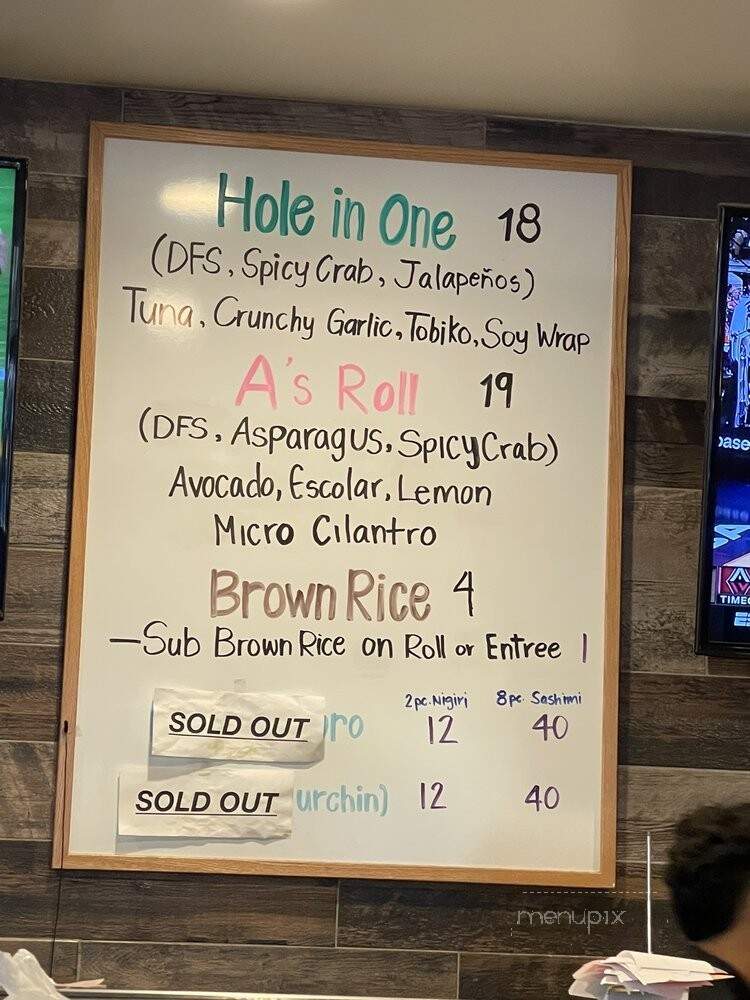 Hole in One 18
(DFS, Spicy Crab, Jalapeños)
Tuna, Crunchy Garlic, Tobiko, Soy Wrap
A's Roll 19
(DFS, Asparagus, Spicy Crab)
Avocado, Escolar, Lemon
Micro Cilantro
Brown Rice 4
—Sub Brown Rice on Roll or Entree 1
2pc. Nigiri 8pc. Sashimi
SOLD OUT 12 40
SOLD OUT urchin) 12 40
menupix